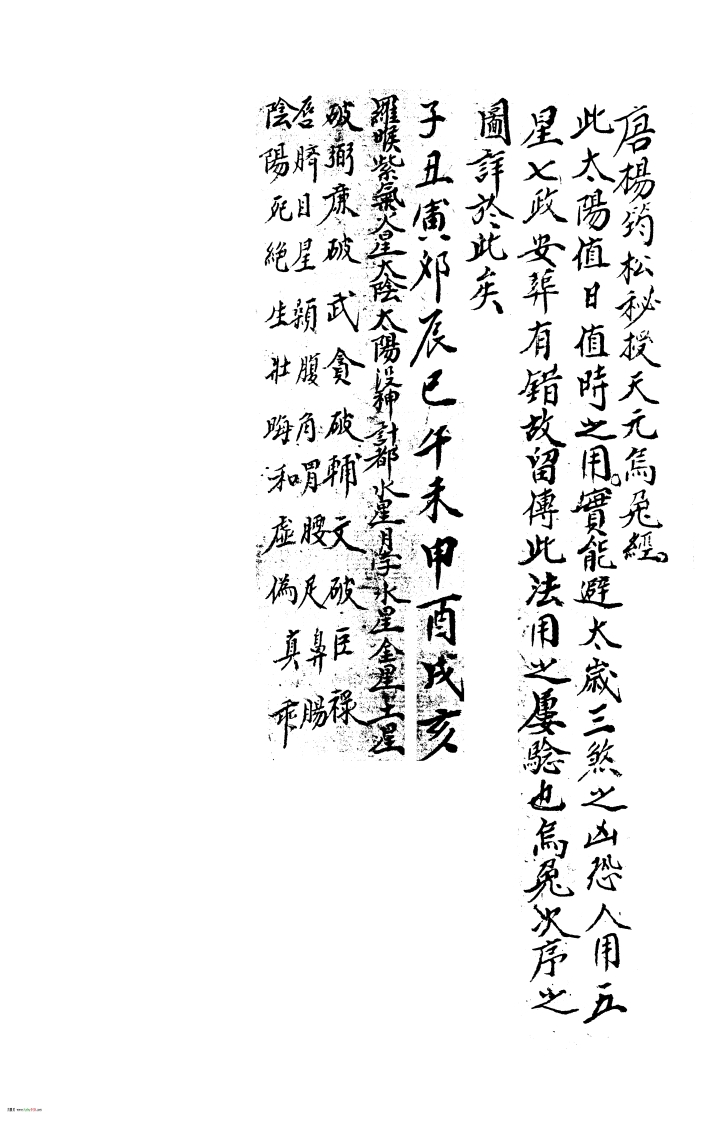 唐楊筠松秘授天元烏兔經。
此太陽值日值時之用。實能避太歲三煞之凶恐人用五
星七政安葬有錯故留傳此法用之屢騐也烏兔次序之
圖詳於此矣
子丑寅卯辰巳午未申酉戌亥
羅㬋紫氣火星太陰太陽没神計都水星月孛水星金星土星
破弼廉破武貪破輔文破巨祿
唇臍目星顙腹角胃腰足鼻腸
陰陽死絕生壯晦和虛偽真乖